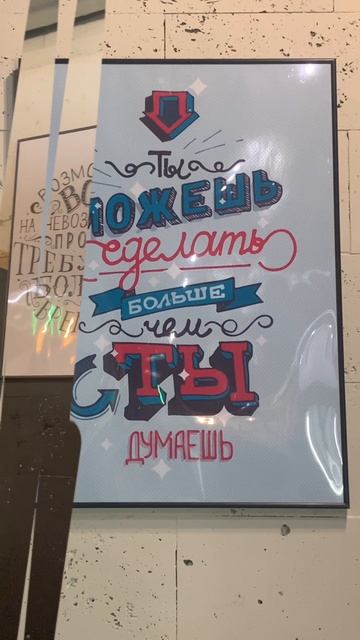 Ты
можешь
сделать
БОЛЬШЕ
чем
ТЫ
ДУМАЕШЬ
НА НЕВОЗ
ПРО
ТРЕБУ